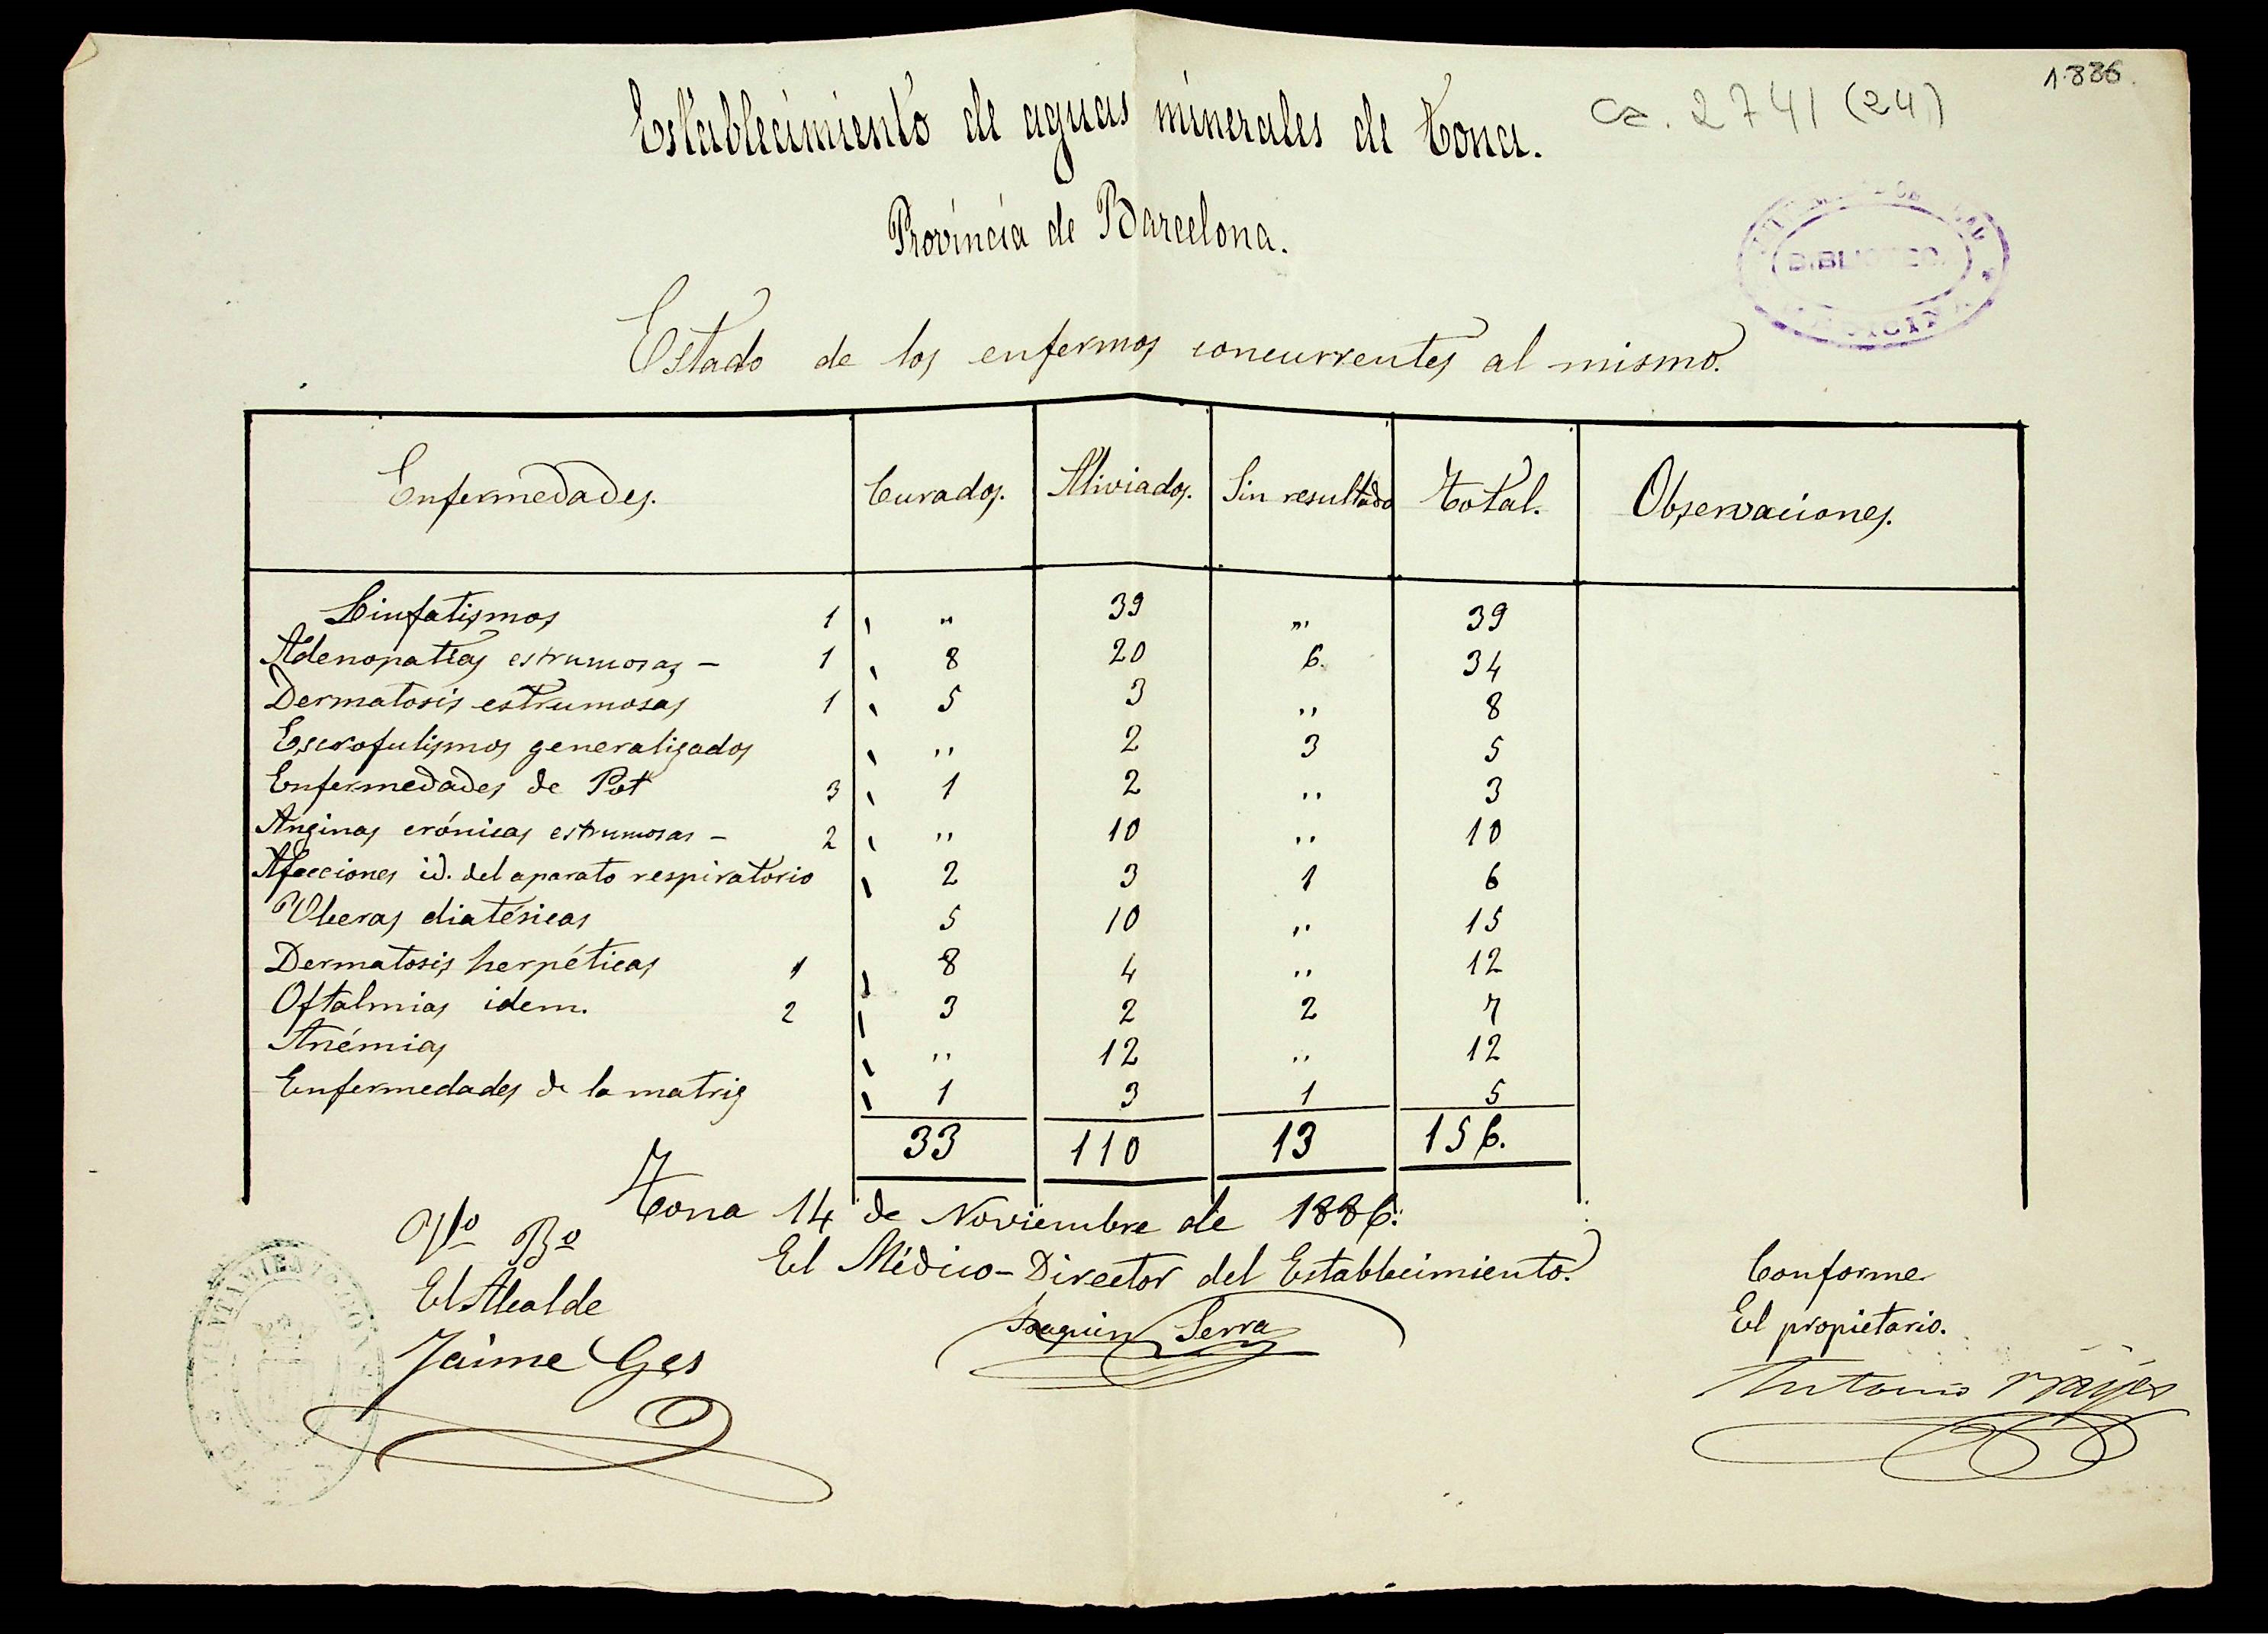 1.886.
Establecimiento de aguas minerales de Tona.
Ca. 2741 (24)
Provincia de Barcelona.
BIBLIOTECA
Estado de los enfermos concurrentes al mismo.
Enfermedades. Curados. Aliviados. Sin resultado Total. Observaciones.
Linfatismos 1 " 39 " 39
Adenopatías estrumosas – 1 8 20 6. 34
Dermatosis estrumosas 1 5 3 " 8
Escrofulismos generalizados " 2 3 5
Enfermedades de Pot 3 1 2 " 3
Anginas crónicas estrumosas – 2 " 10 " 10
Afecciones id. del aparato respiratorio 2 3 1 6
Ulceras diatésicas 5 10 " 15
Dermatosis herpéticas 1 8 4 " 12
Oftalmias idem. 2 3 2 2 7
Anémias " 12 " 12
Enfermedades de la matriz 1 3 1 5
33 110 13 156.
Tona 14 de Noviembre de 1886.
Vº Bº
El Médico-Director del Establecimiento.
Conforme
El Alcalde
El propietario.
Joaquin Serra
Jaime Ges
Antonio